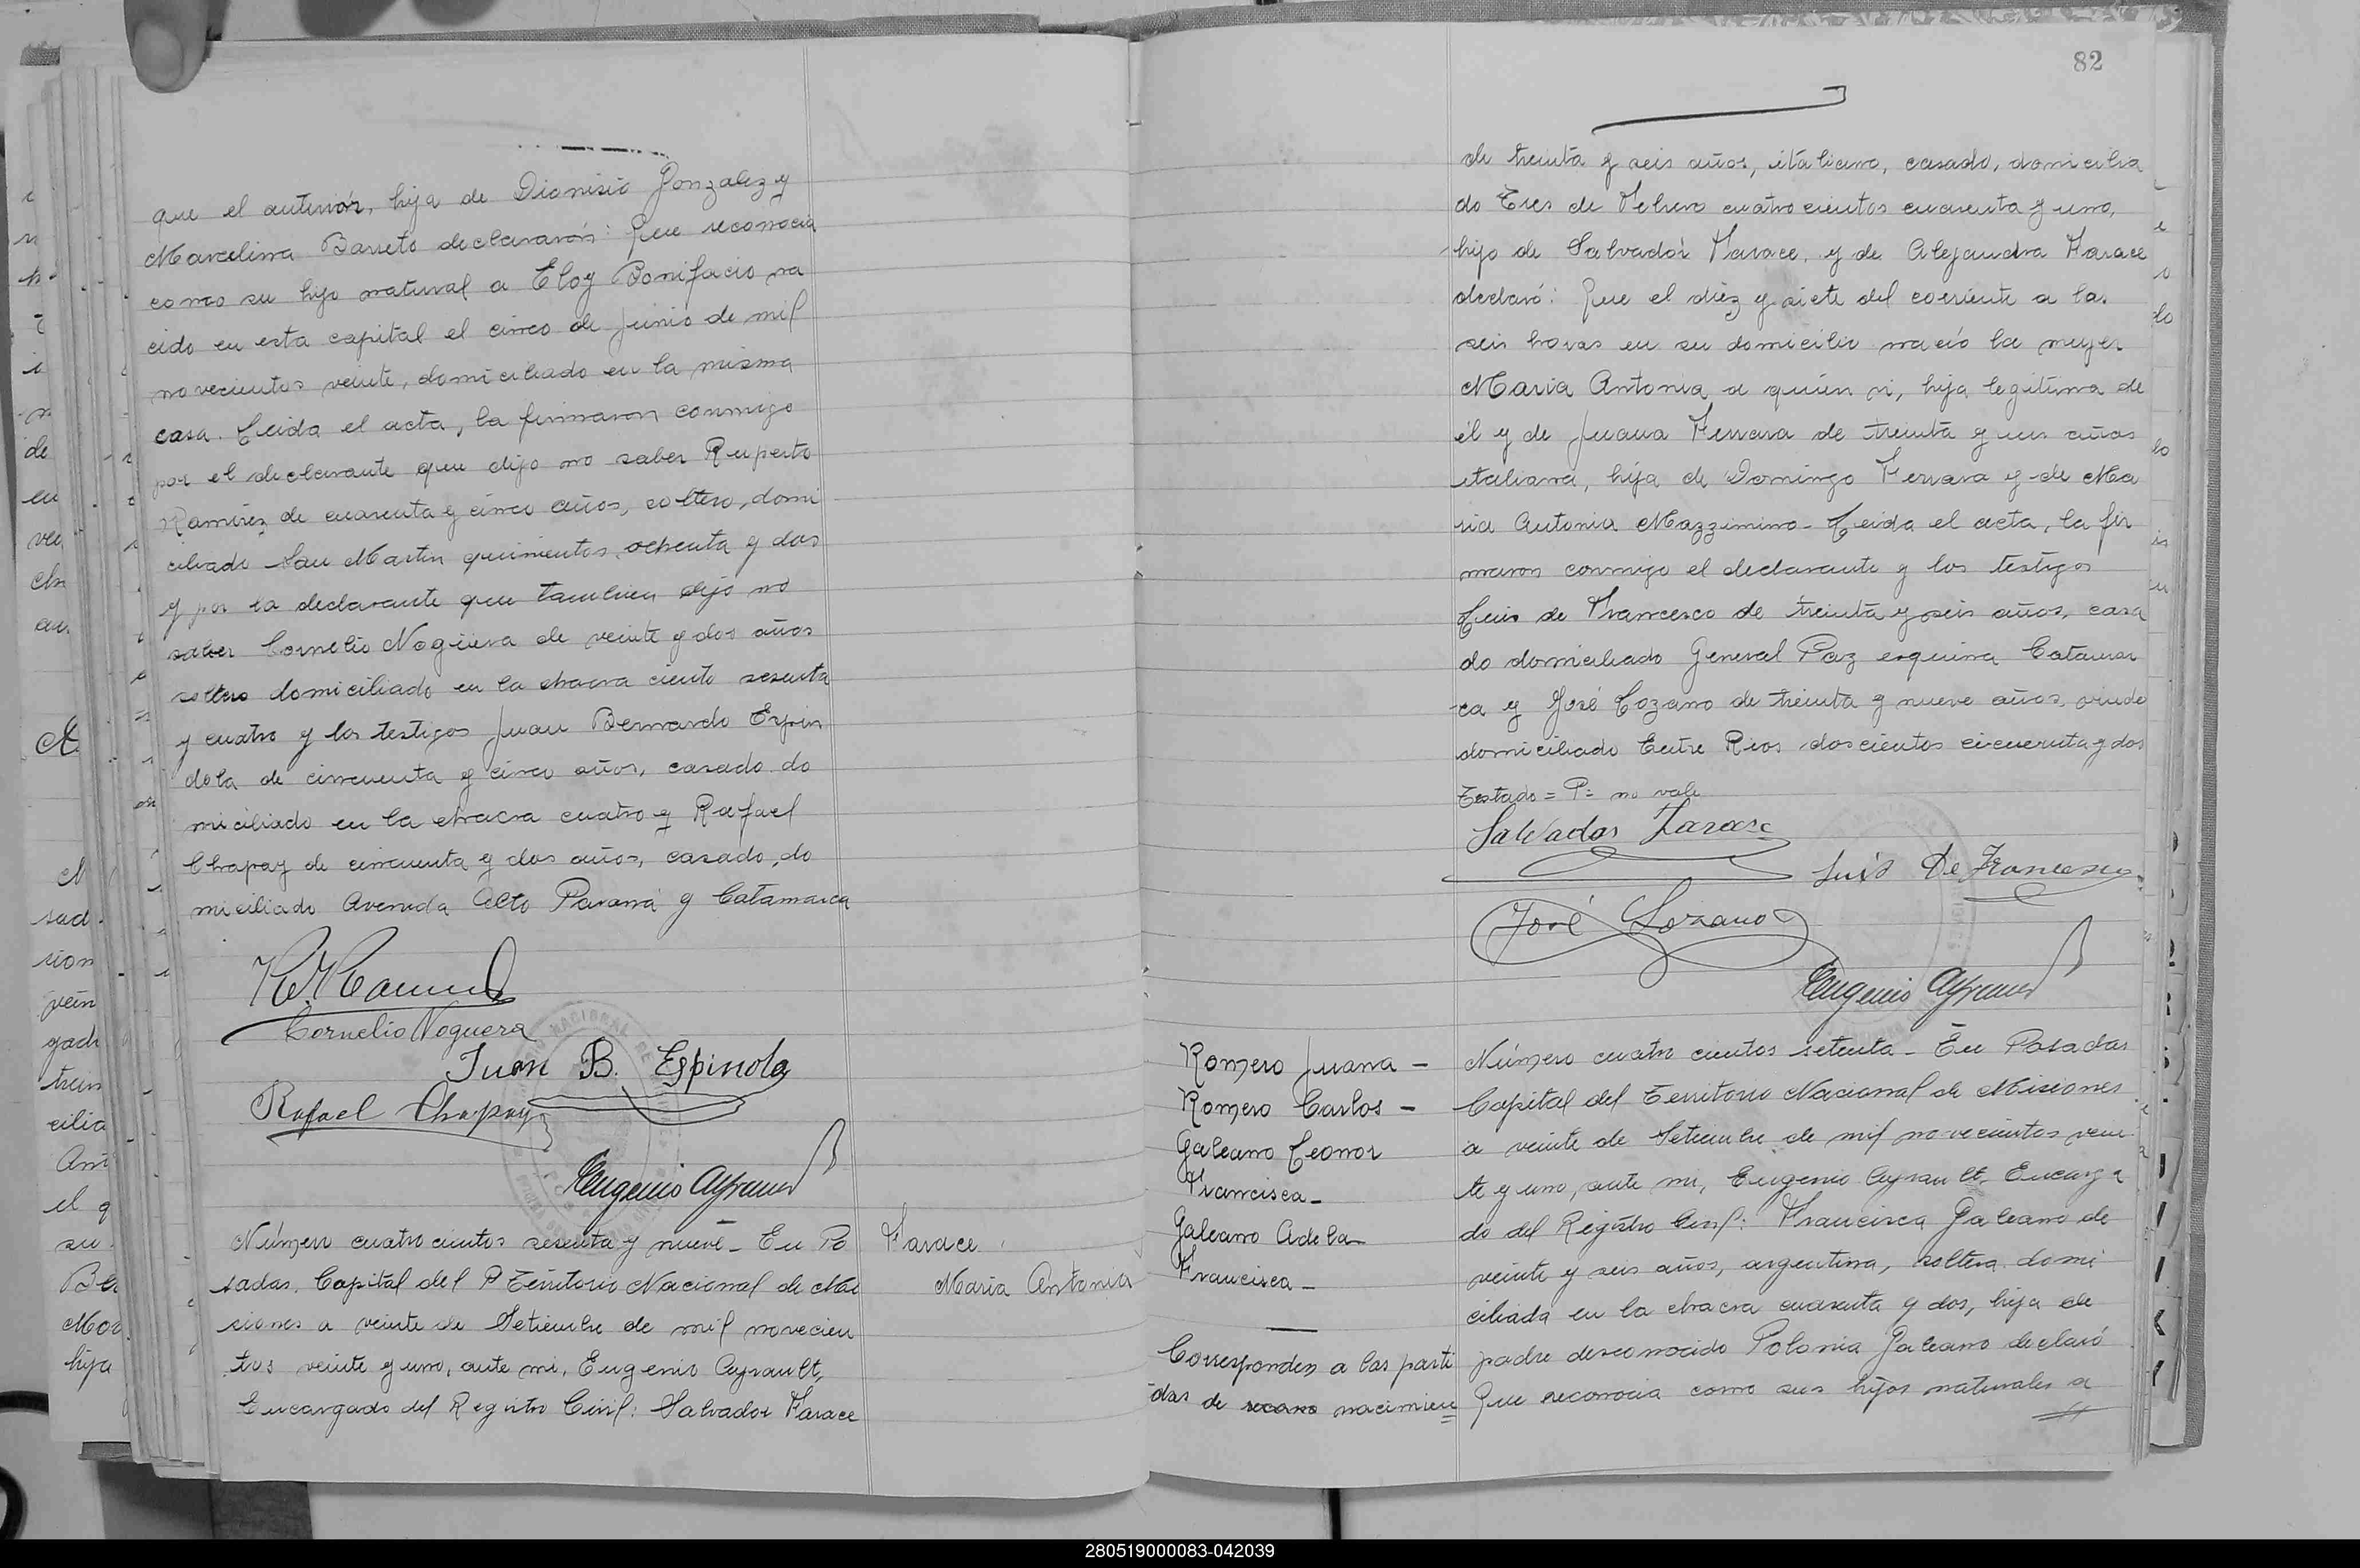 que el anterior, hija de Dionisio Gonzalez y
Marcelina Barreto declararon: Que reconocia
como su hijo natural a Eloy Bonifacio na
cido en esta capital el cinco de junio de mil
novecientos veinte, domiciliado en la misma
casa. Leida el acta, la firmaron conmigo
por el declarante que dijo no saber Ruperto
Ramirez de cuarenta y cinco años, soltero, domi
ciliado San Martin quinientos ochenta y dos
y por la declarante que tambien dijo no
saber Cornelio Nogüera de veinte y dos años
soltero domiciliado en la chacra ciento sesenta
y cuatro y los testigos Juan Bernardo Espin
dola de cincuenta y cinco años, casado do
miciliado en la chacra cuatro y Rafael
Chapay de cincuenta y dos años, casado, do
miciliado Avenida Alto Paraná y Catamarca
Cornelio Noguera
Juan B. Espinola
Rafael Chapay
Eugenio Ayrault
Número cuatrocientos sesenta y nueve - En Po
sadas, Capital del P Territorio Nacional de Mi
siones a veinte de Setiembre de mil novecien
tos veinte y uno, ante mi, Eugenio Ayrault,
Encargado del Registro Civil: Salvador Farace
Farace
Maria Antonia
82
de treinta y seis años, italiano, casado, domicilia
do Tres de Febrero cuatrocientos cuarenta y uno,
hijo de Salvador Farace, y de Alejandra Farace
declaró: Que el diez y siete del corriente a las
seis horas en su domicilio nació la mujer
Maria Antonia a quien vi, hija legitima de
él y de Juana Ferrara de treinta y un años
italiana, hija de Domingo Ferrara y de Ma
ria Antonia Mazzimino - Leida el acta, la fir
maron conmigo el declarante y los testigos
Luis de Francesco de treinta y seis años, casa
do domiciliado General Paz esquina Catamar
ca y José Lozano de treinta y nueve años, viudo
domiciliado Entre Rios doscientos cincuenta y dos
Testado = P = no vale
Salvador Farace
Luis De Francesco
José Lozano
Eugenio Ayrault
Romero Juana -
Romero Carlos -
Galeano Leonor
Francisca -
Galeano Adela
Francisca -
Corresponden a las parti
das de nacimien
Número cuatro cientos setenta - En Posadas
Capital del Territorio Nacional de Misiones
a veinte de Setiembre de mil novecientos vein
te y uno, ante mi, Eugenio Ayrault, Encarga
do del Registro Civil: Francisca Galeano de
veinte y seis años, argentina, soltera domi
ciliada en la chacra cuarenta y dos, hija de
padre desconocido Polonia Galeano declaró
Que reconocia como sus hijos naturales a
280519000083-042039